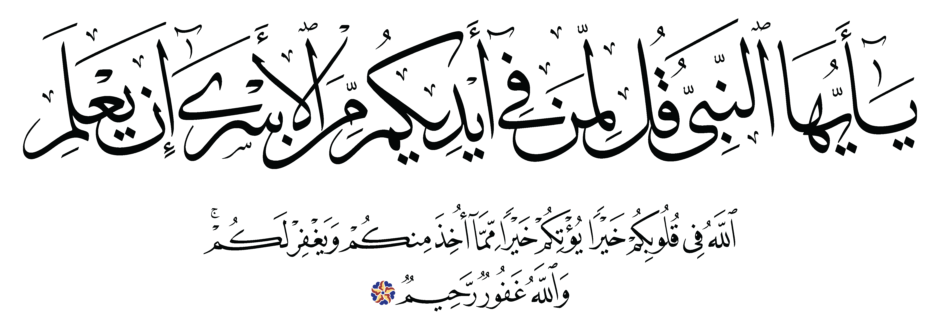 يَٰٓأَيُّهَا ٱلنَّبِيُّ قُل لِّمَن فِىٓ أَيْدِيكُم مِّنَ ٱلْأَسْرَىٰٓ إِن يَعْلَمِ
ٱللَّهُ فِى قُلُوبِكُمْ خَيْرًا يُؤْتِكُمْ خَيْرًا مِّمَّآ أُخِذَ مِنكُمْ وَيَغْفِرْ لَكُمْ ۗ
وَٱللَّهُ غَفُورٌ رَّحِيمٌ